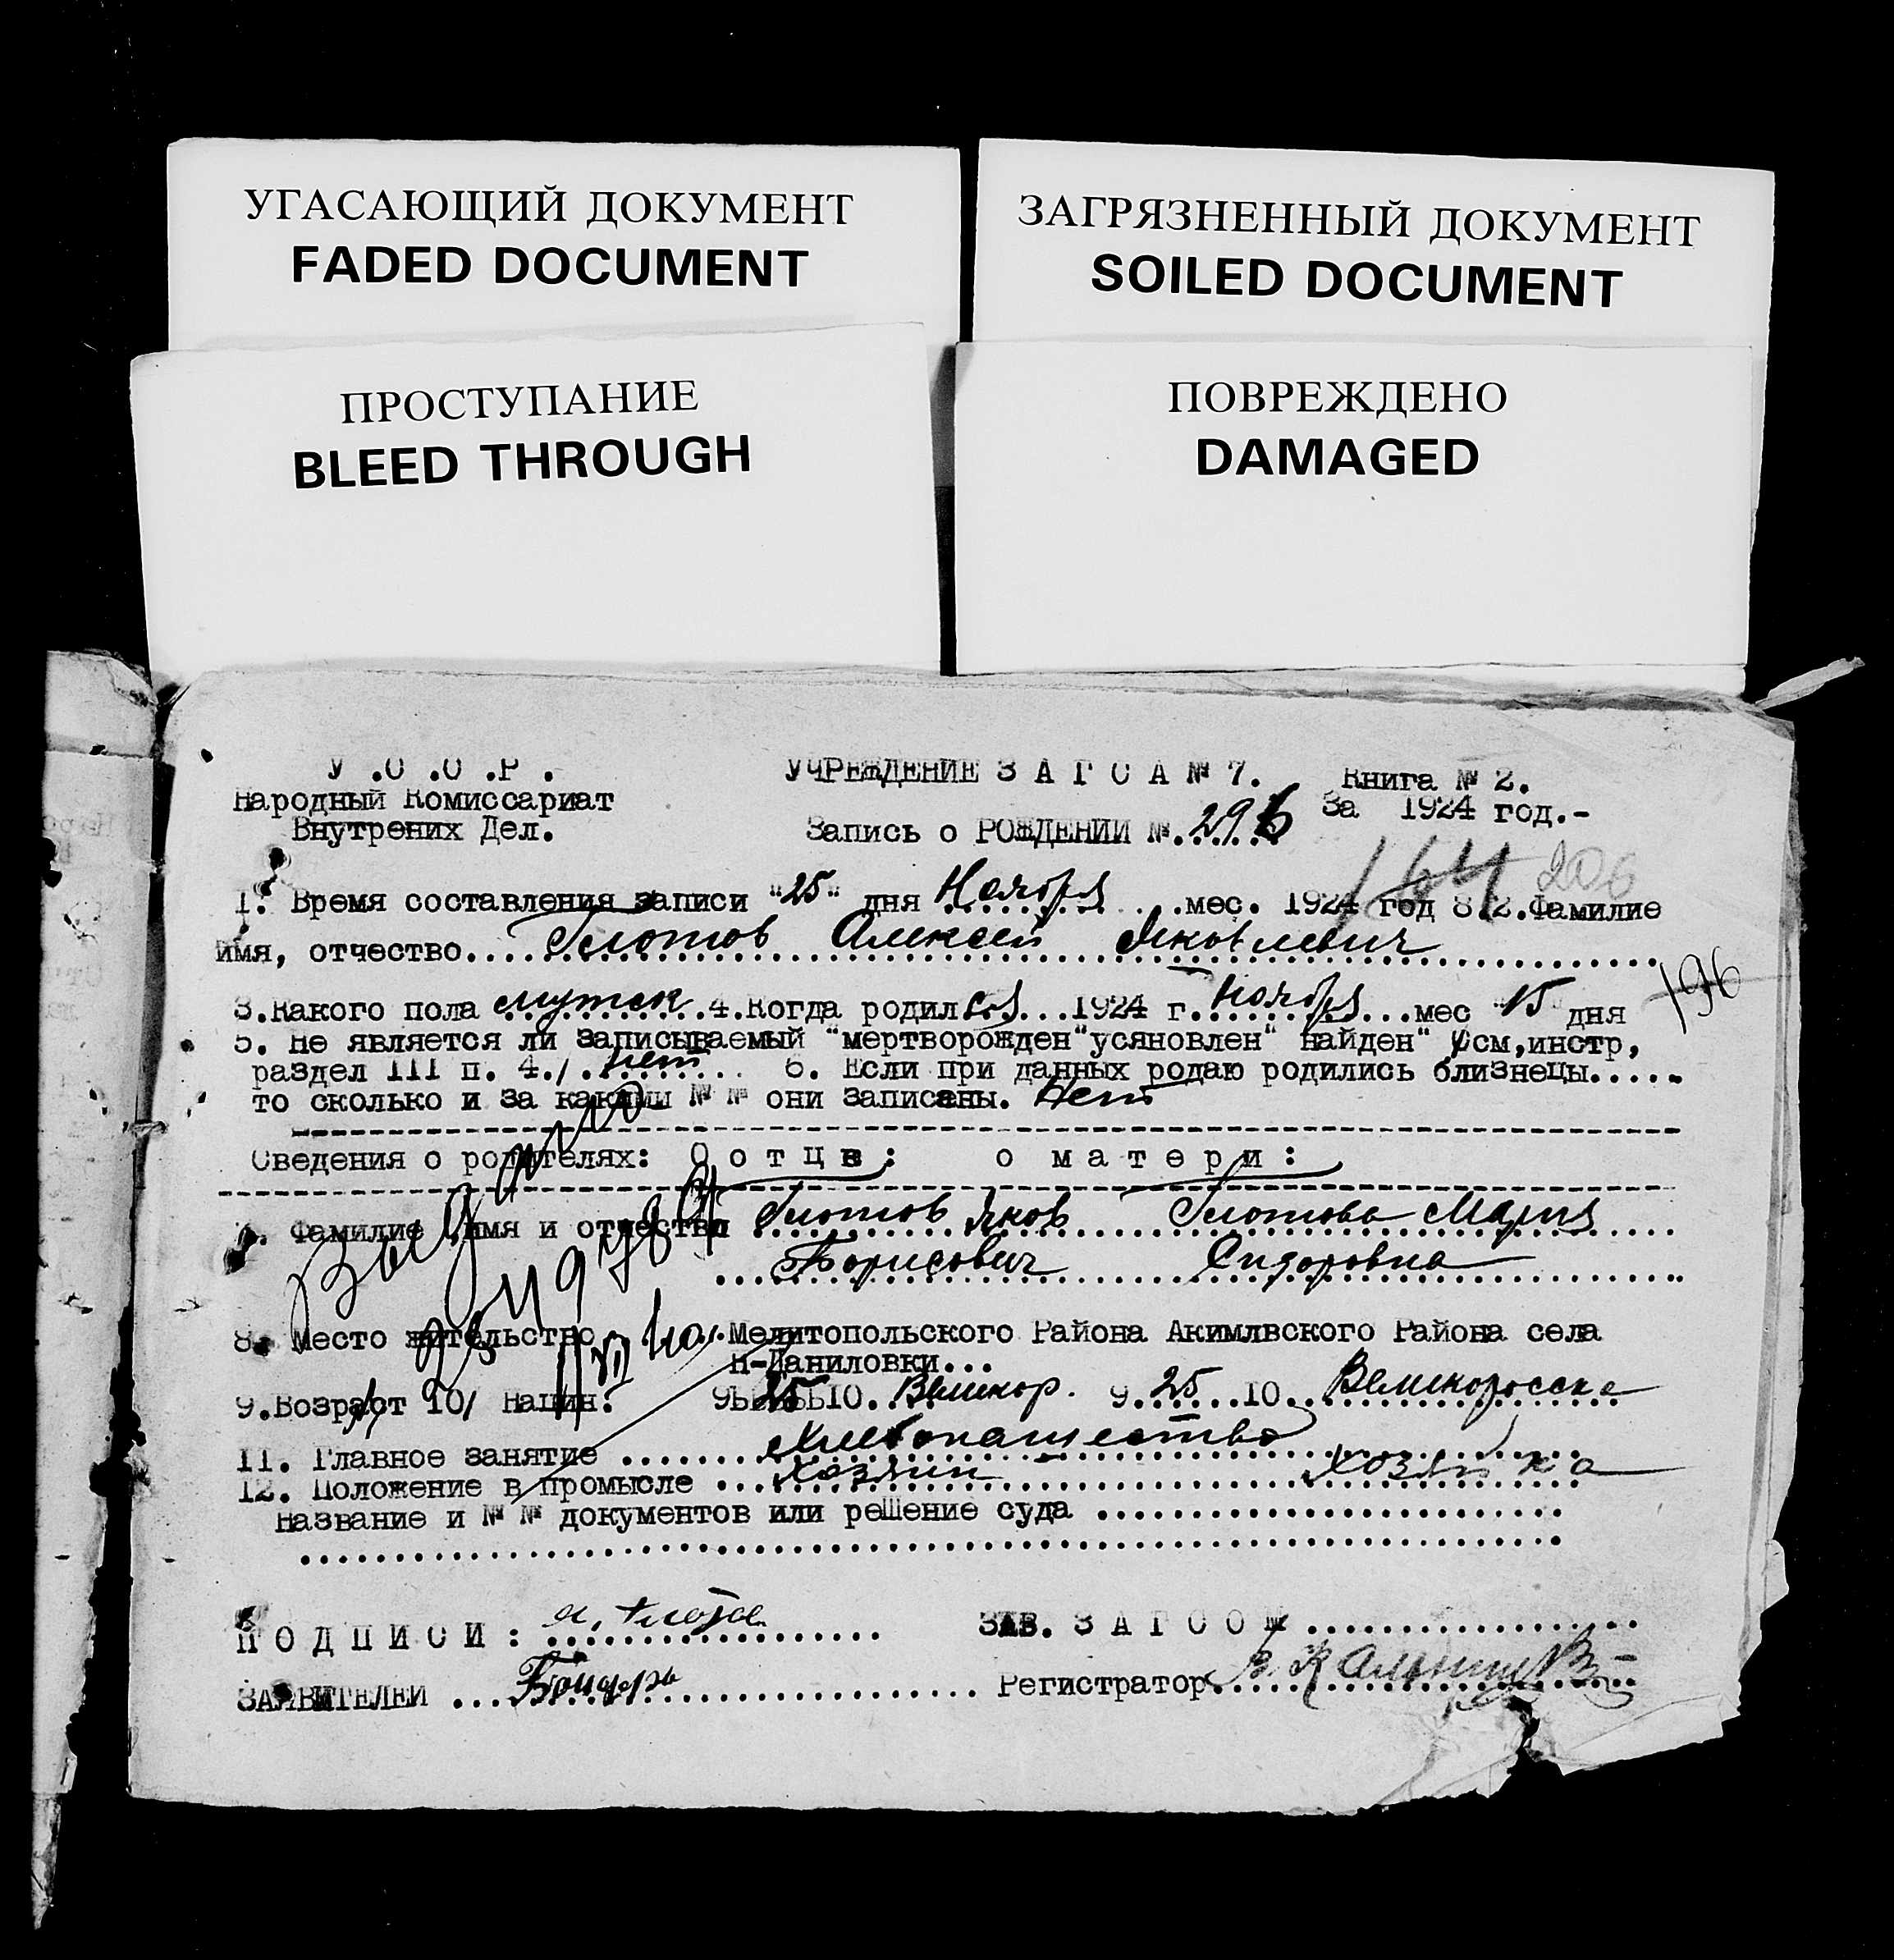 УГАСАЮЩИЙ ДОКУМЕНТ
FADED DOCUMENT
ЗАГРЯЗНЕННЫЙ ДОКУМЕНТ
SOILED DOCUMENT
ПРОСТУПАНИЕ
BLEED THROUGH
ПОВРЕЖДЕНО
DAMAGED
У .С .С .Р .
Народный Комиссариат
Внутрених Дел.
УЧРЕЖДЕНИЕ З А Г С А № 7.
Запись о РОЖДЕНИИ №.296
Книга № 2.
За 1924 год.-
164 206
1. Время составления записи "25" дня Ноября мес. 1924 год 8.2.Фамилие
имя, отчество.. Глотов Алексей Яковлевич
196
3.Какого пола мужск. 4.Когда родился...1924 г. ноября...мес "15" дня
5. Не является ли записываемый "мертворожден"усяновлен" найден" /см,инстр,
раздел III п. 4./. нет 6. Если при данных родаю родились близнецы.....
то сколько и за какими № № они записаны. Нет
Сведения о родителях: О о т ц е : о м а т е р и :
7. Фамилие имя и отчество Глотов Яков Глотова Мария
Борисович Сидоровна
8. Место жительство Мелитопольского Района Акимлвского Района села
Н-Даниловки...
9.Возраст 10/ Нацин. 25 10. Великор. 9. 25 ..10. Великоросска
11. Главное занятие ....... Хлебопашество
12. Положение в промысле ... хозяин хозяйка
Название и № № документов или решение суда
П О Д П И С И :
ЗАЯВИТЕЛЕЙ ... Бондарь
ЗАВ. З А Г С О М
Регистратор